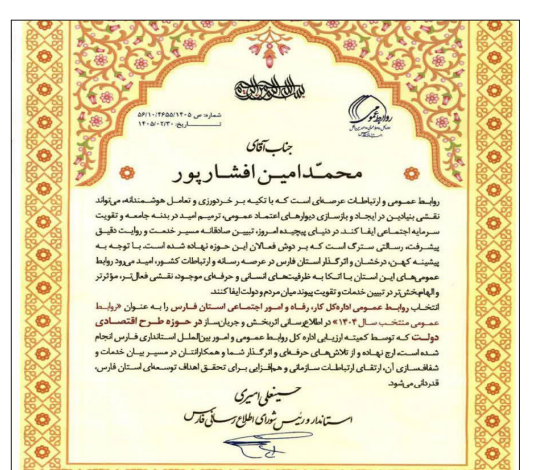 بسم الله الرحمن الرحیم
روابط عمومی
شماره: ص ۵۶/۱۰/۴۶۵۵/۱۴۰۵
تاریخ: ۱۴۰۵/۰۲/۳۰
جناب آقای
محمّدامین افشارپور
روابط عمومی و ارتباطات عرصه‌ای است که با تکیه بر خردورزی و تعامل هوشمندانه، می‌تواند
نقشی بنیادین در ایجاد و بازسازی دیوارهای اعتماد عمومی، ترمیم امید در بدنه جامعه و تقویت
سرمایه اجتماعی ایفا کند. در دنیای پیچیده امروز، تبیین صادقانه مسیر خدمت و روایت دقیق
پیشرفت، رسالتی سترگ است که بر دوش فعالان این حوزه نهاده شده است. با توجه به
پیشینه کهن، درخشان و اثرگذار استان فارس در عرصه رسانه و ارتباطات کشور، امید می‌رود روابط
عمومی‌های این استان با اتکا به ظرفیت‌های انسانی و حرفه‌ای موجود، نقشی فعال‌تر، مؤثرتر
و الهام‌بخش‌تر در تبیین خدمات و تقویت پیوند میان مردم و دولت ایفا کنند.
انتخاب روابط عمومی اداره‌کل کار، رفاه و امور اجتماعی استان فارس را به عنوان «روابط
عمومی منتخب سال ۱۴۰۴» در اطلاع‌رسانی اثربخش و جریان‌ساز در حوزه طرح اقتصادی
دولت که توسط کمیته ارزیابی اداره کل روابط عمومی و امور بین‌الملل استانداری فارس انجام
شده است، ارج نهاده و از تلاش‌های حرفه‌ای و اثرگذار شما و همکارانتان در مسیر بیان خدمات و
شفاف‌سازی آن، ارتقای ارتباطات سازمانی و هم‌افزایی برای تحقق اهداف توسعه‌ای استان فارس،
قدردانی می‌شود.
حسینعلی امیری
استاندار و رئیس شورای اطلاع رسانی فارس